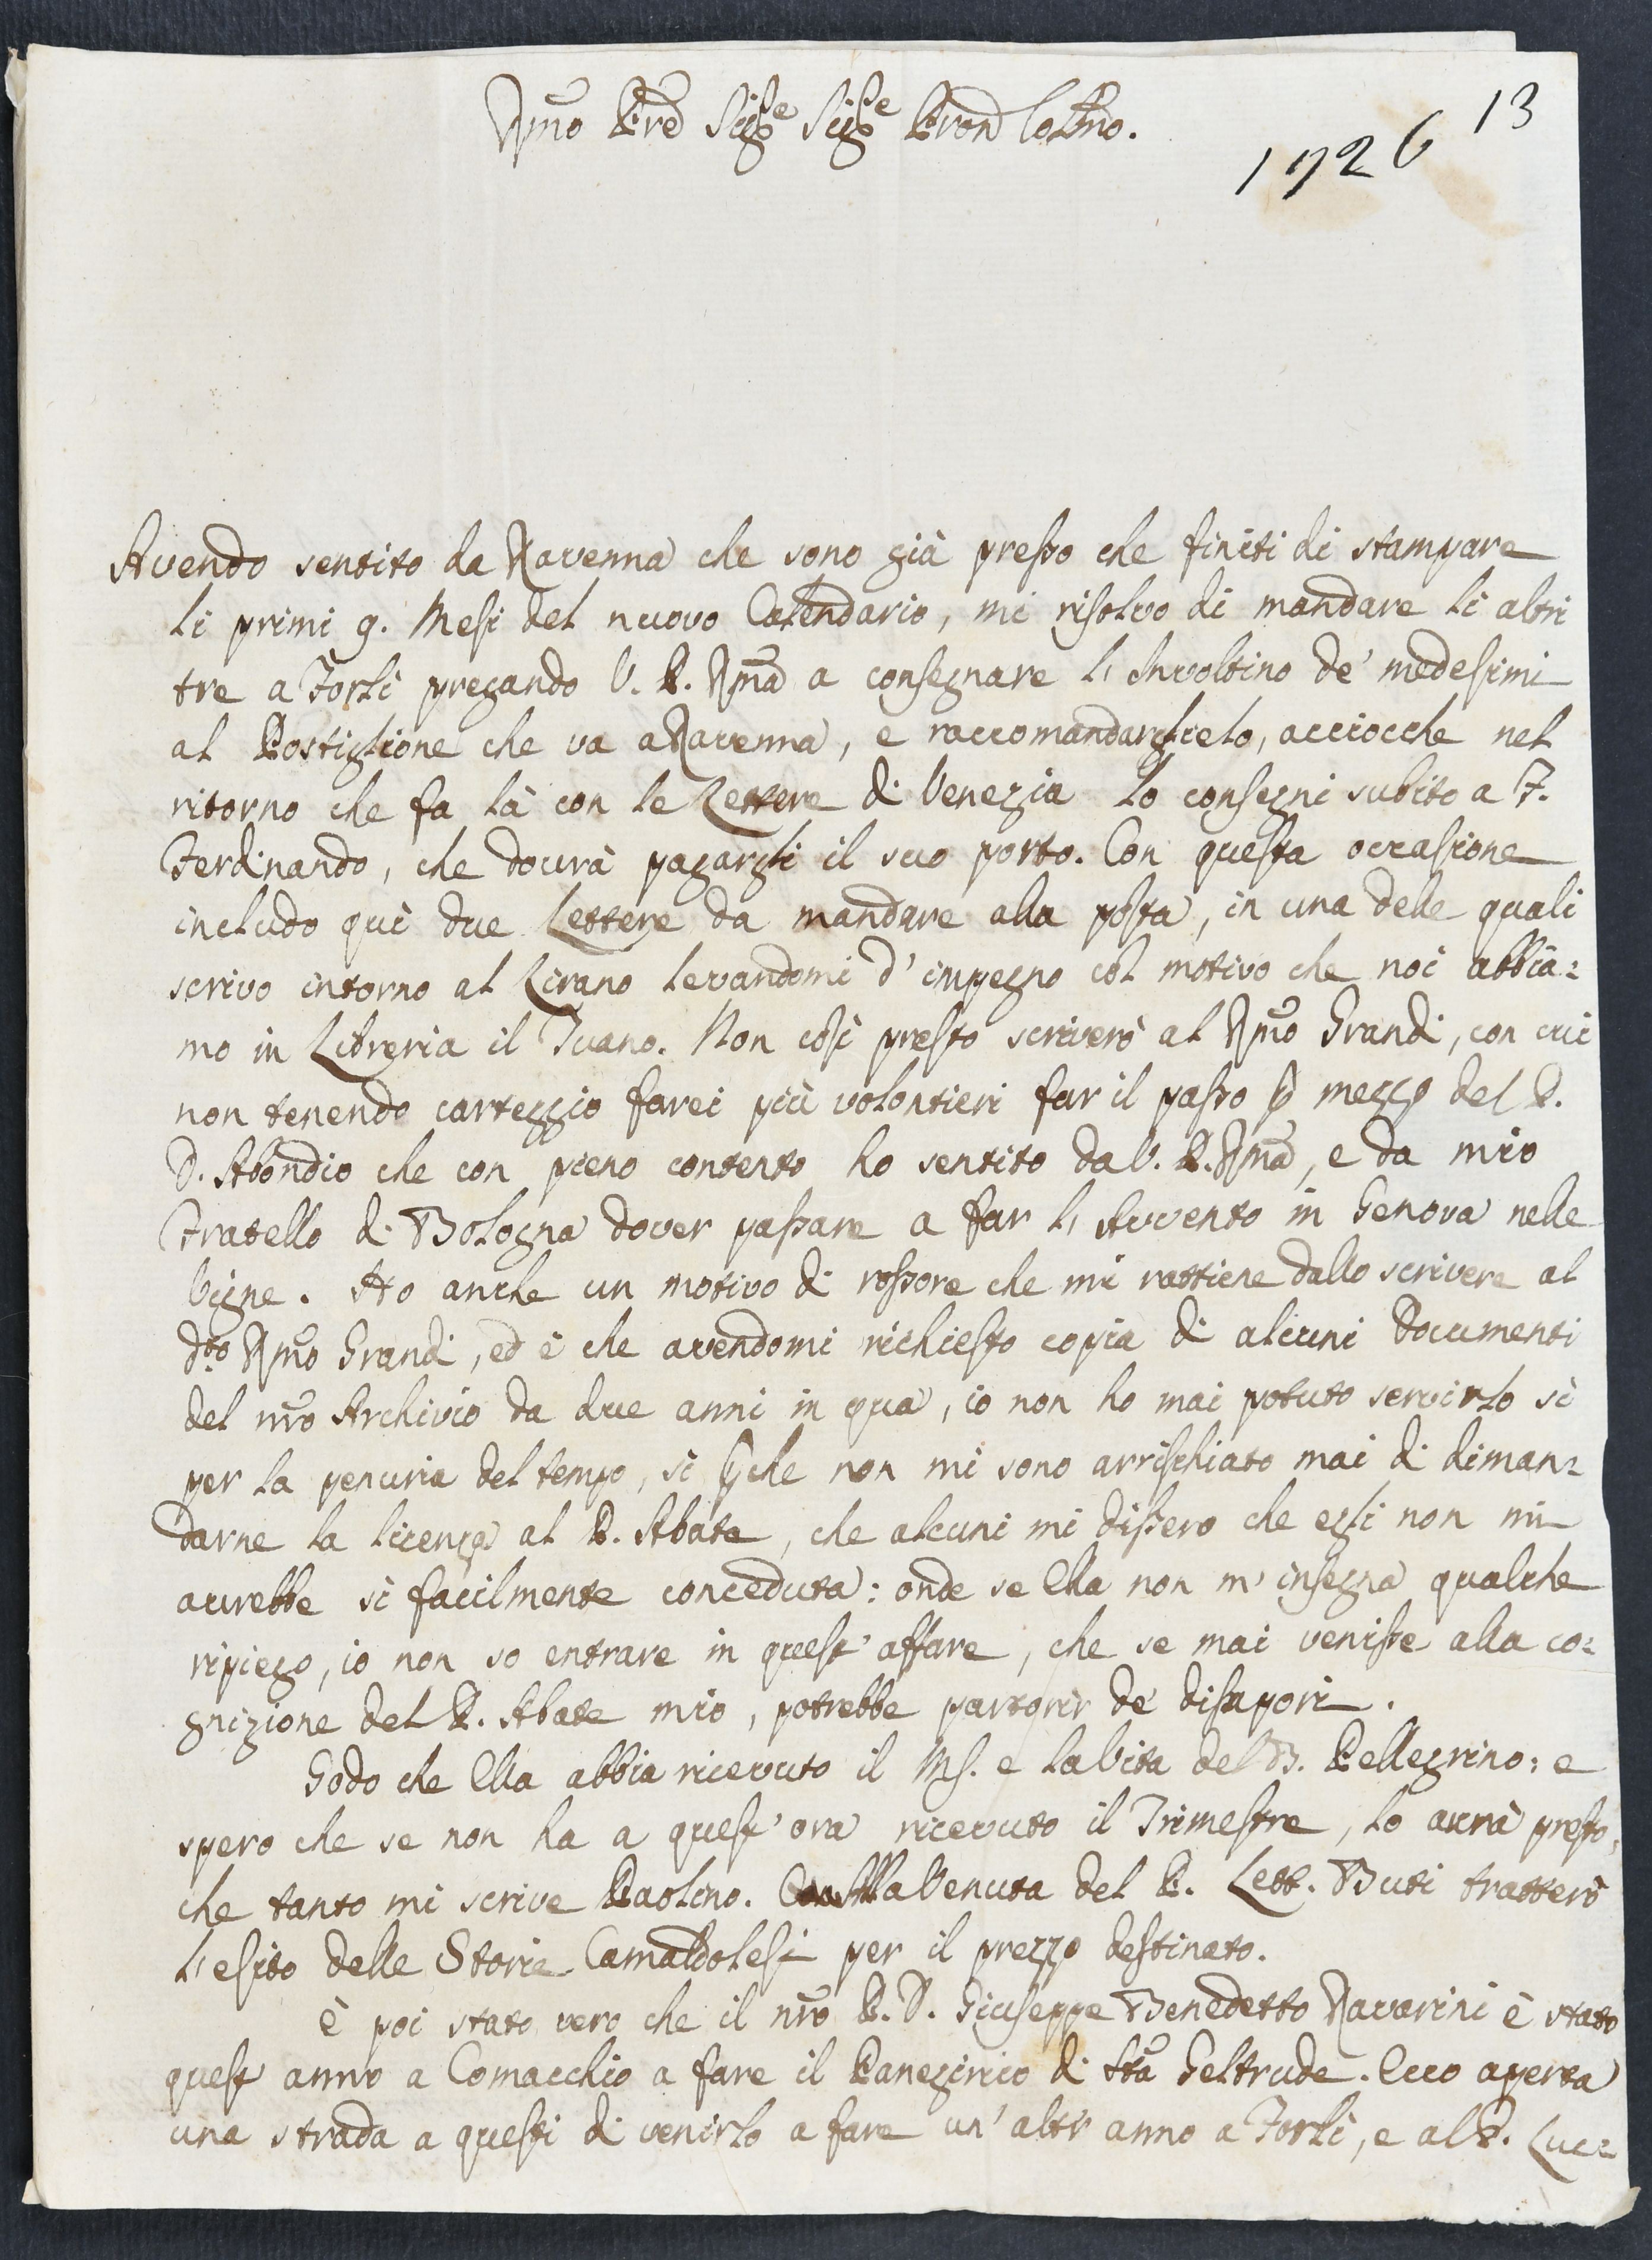 Rm̃o Prẽ Sigre Sigre Pron Colmo.
13
1726
Avendo sentito da Ravenna che sono già presso che finiti di stampare
li primi 9. Mesi del nuovo Calendario, mi risolvo di mandare li altri
tre a Forlì pregando V. P. Rm̃a a consegnare l'Involtino de' medesimi
al Postiglione che va a Ravenna, e raccomandarglielo, acciocche nel
ritorno che fa là con le Lettere di Venezia lo consegni subito a F.
Ferdinando, che dovrà pagargli il suo porto. Con questa occasione
includo quì due Lettere da mandare alla posta, in una delle quali
scrivo intorno al Lirano levandomi d'impegno col motivo che noi abbia=
mo in Libreria il Tuano. Non così presto scriverò al Rm̃o Grandi, con cui
non tenendo carteggio farei più volontieri far il passo p mezzo del P.
D. Abondio che con pieno contento ho sentito da V. P. Rm̃a, e da mio
Fratello di Bologna dover passare a far l'Avvento in Genova nelle
Vigne. Ho anche un motivo di rossore che mi rattiene dallo scrivere al
dto Rm̃o Grandi, ed è che avendomi richiesto copia di alcuni Documenti
del nr̃o Archivio da due anni in qua, io non ho mai potuto servirlo sì
per la penuria del tempo, sì pche non mi sono arrischiato mai di diman=
darne la licenza al P. Abate, che alcuni mi dissero che egli non mi
avrebbe sì facilmente conceduta: onde se Ella non m'insegna qualche
ripiego, io non so entrare in quest'affare, che se mai venisse alla co=
gnizione del P. Abate mio, potrebbe partorir de' disapori.
Godo che Ella abbia ricevuto il Ms. e la Vita del B. Pellegrino: e
spero che se non ha a quest'ora ricevuto il Trimestre, lo avrà presto,
che tanto mi scrive Paolino. Alla Venuta del P. Lett. Buti tratterò
l'esito delle Storie Camaldolesi per il prezzo destinato.
È poi stato vero che il nr̃o P. D. Giuseppe Benedetto Ravarini è stato
quest anno a Comacchio a fare il Panegirico di Sta Geltrude. Ecco aperta
una strada a questi di venirlo a fare un'altr anno a Forlì, e al P. Luc=